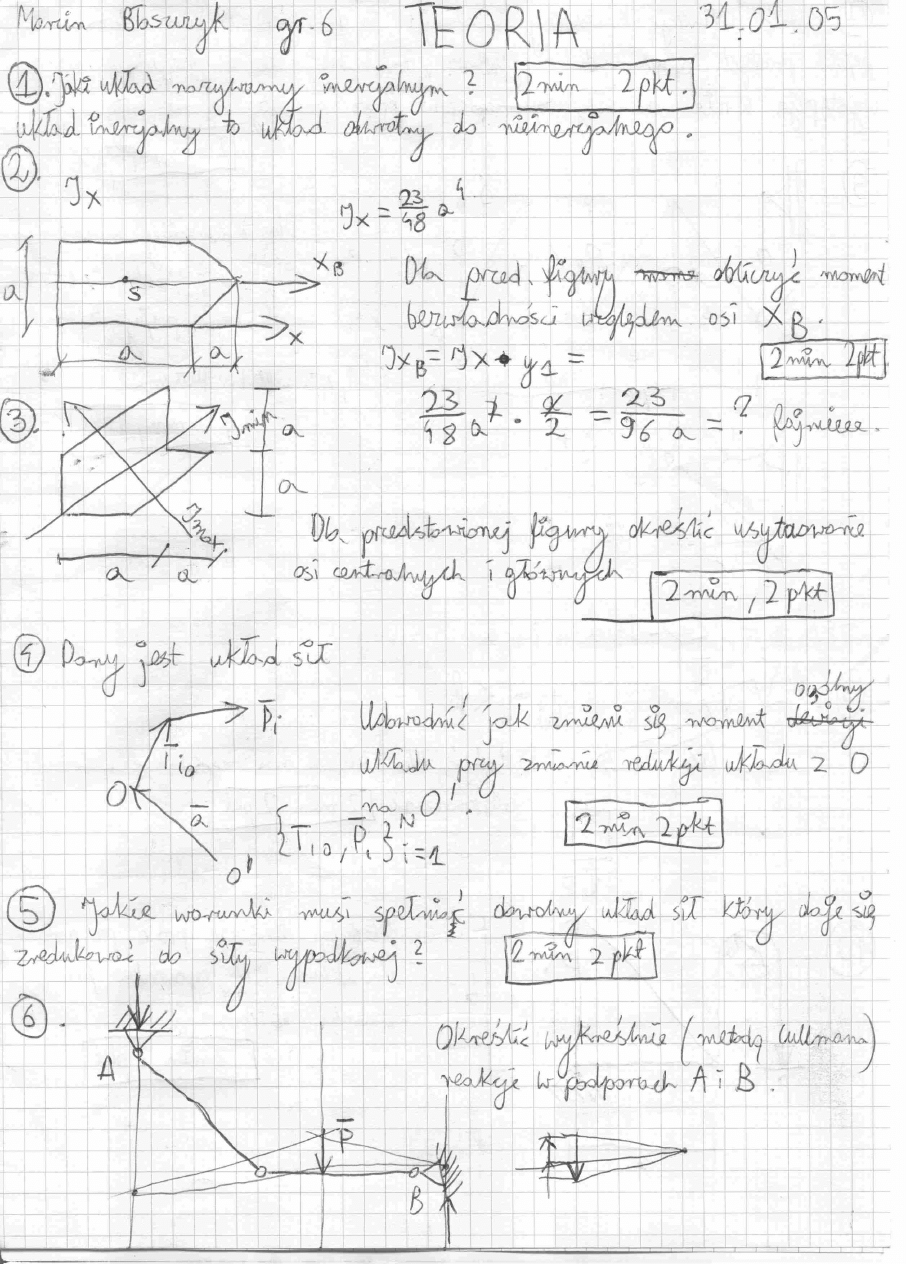 Marcin Błaszczyk gr.6 TEORIA 31.01.05
1. Jaki układ nazywamy inercjalnym? 2min 2pkt.
układ inercjalny to układ odwrotny do nieinercjalnego.
2.
Jx
Jx = 23/48 a⁴
a
S
XB
x
a a
Dla przed. figury obliczyć moment
bezwładności względem osi XB.
JxB = Jx • y1 =
2min 2pkt
3.
Jmin
a
a
Jmax.
a a
23/48 a · a/2 = 23/96 a = ? fajnieee.
Dla przedstawionej figury określić usytuowanie
osi centralnych i głównych
2min, 2pkt
4 Dany jest układ sił
Pi
rio
O
a
O'
Udowodnić jak zmieni się moment ogólny
układu przy zmianie redukcji układu z O
na O'.
{rio, Pi} N i=1
2min 2pkt
5 Jakie warunki musi spełniać dowolny układ sił który daje się
zredukować do siły wypadkowej? 2min 2pkt
6.
Określić wykreślnie (metodą Cullmana)
reakcje w podporach A i B.
A
P
B